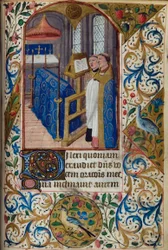 Dilexi quoniam
exaudiet dñs vo
cem orationis mee
Quia inclinauit aurem